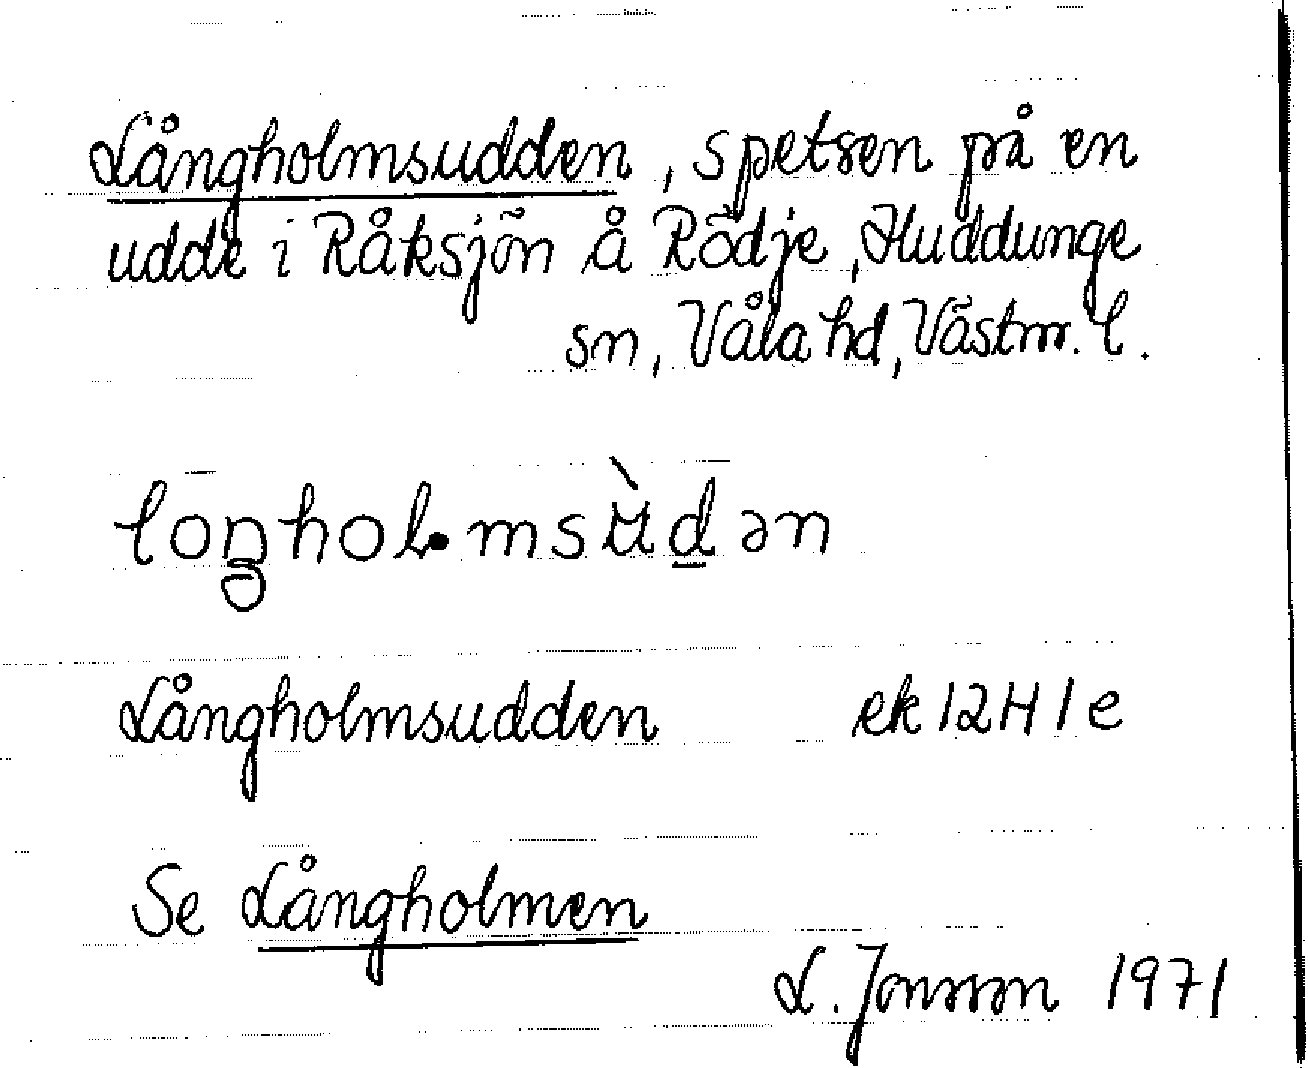 Långholmsudden, spetsen på en
udde i Råksjön å Rödje, Huddunge
sn, Våla hd, Västm. l.
loŋholmsùdən
Långholmsudden ek 12H 1e
Se Långholmen
L. Jonsson 1971